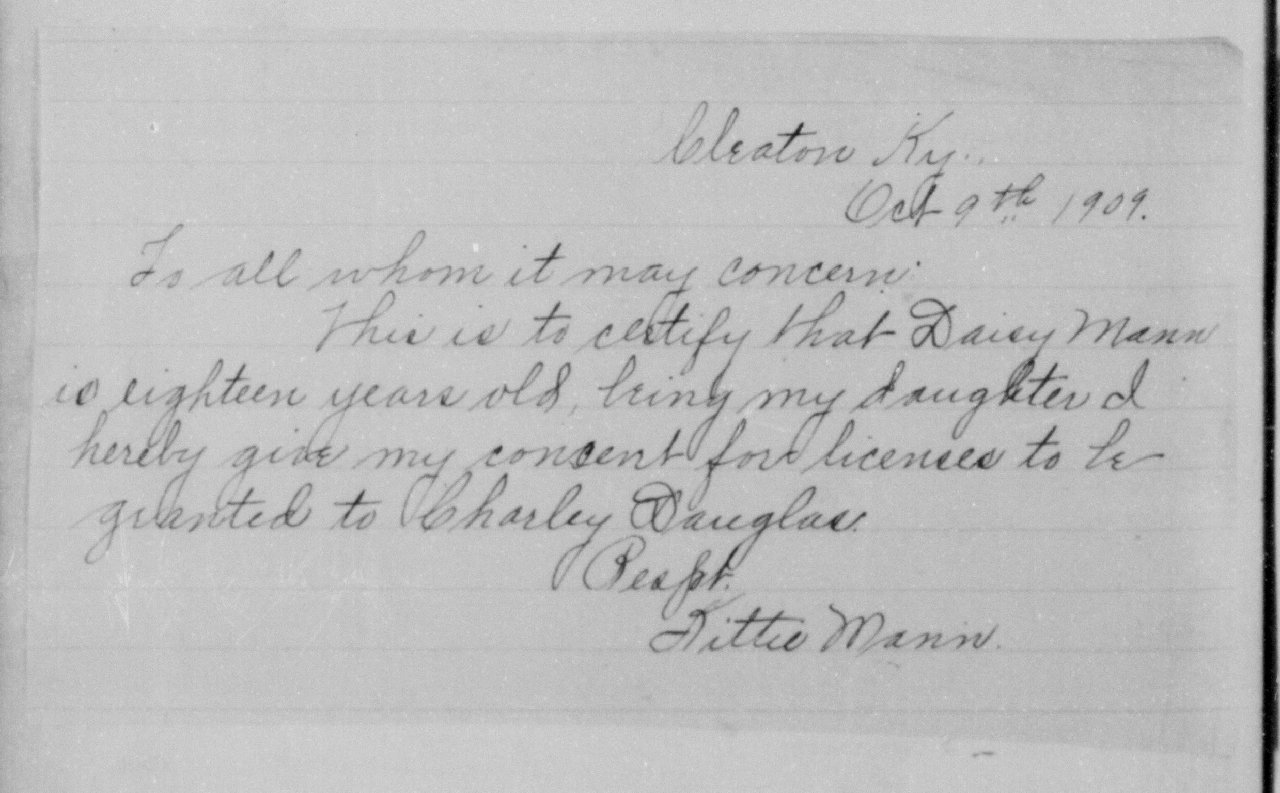 Cleaton Ky.,
Oct 9th 1909.
To all whom it may concern:
This is to certify that Daisy Mann
is eighteen years old, being my daughter I
hereby give my concent for licenses to be
granted to Charley Dauglas.
Respt.
Kittie Mann.